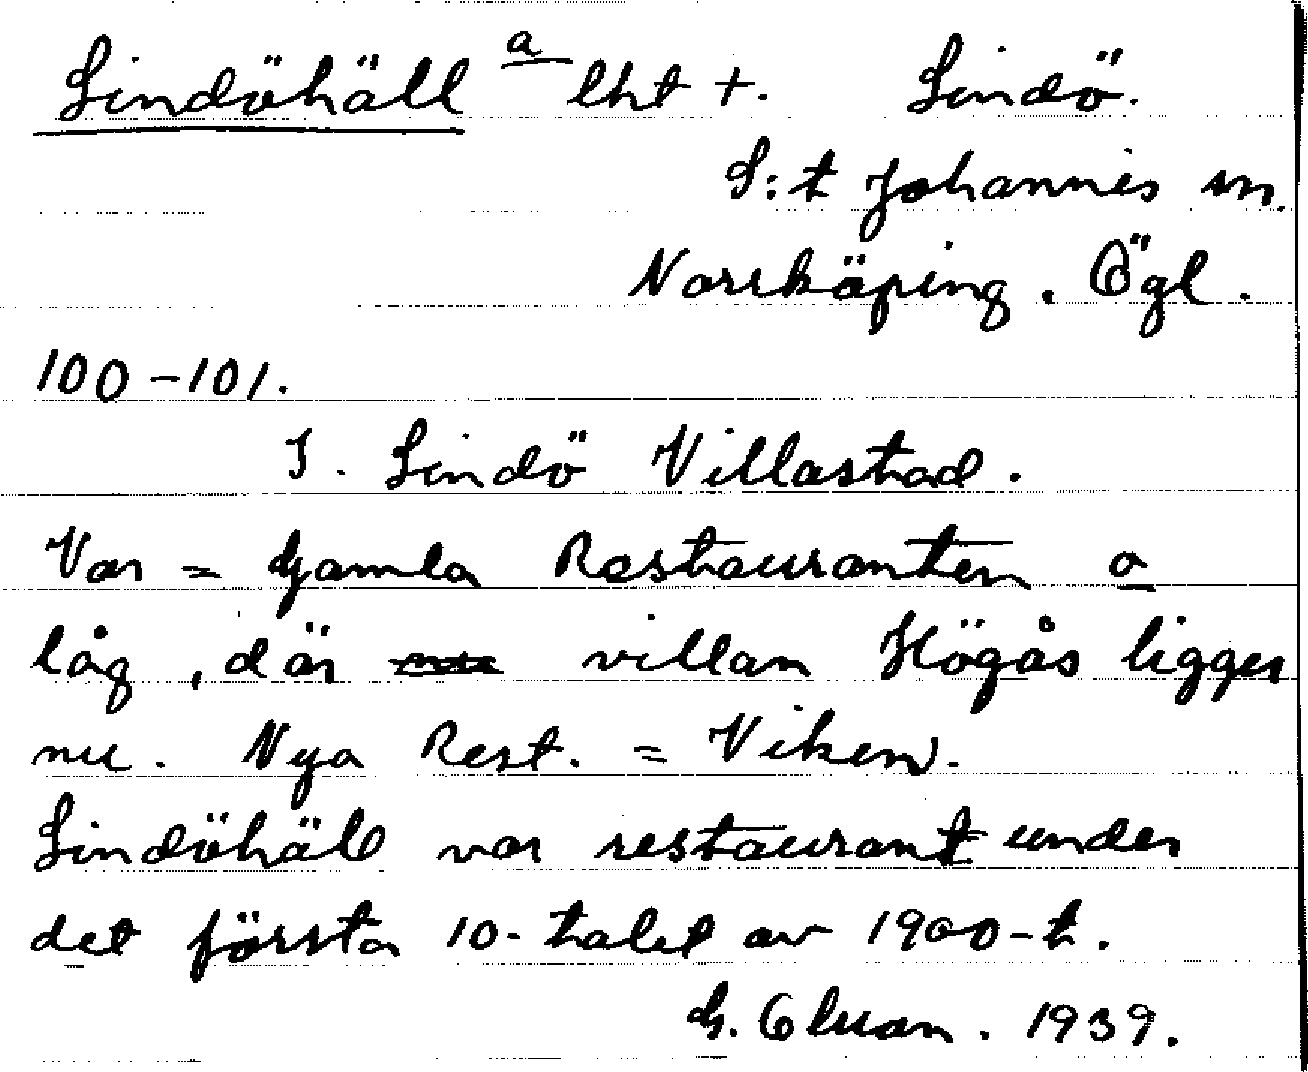 Lindöhäll a lht +. Lindö.
S:t Johannis sn.
Norrköping. Ögl.
100-101.
I. Lindö Villastad.
Var = Gamla Restauranten o
låg, där villan Högås ligger
nu. Nya Rest. = Viken.
Lindöhäll var restaurant under
det första 10-talet av 1900-t.
G. 1939.